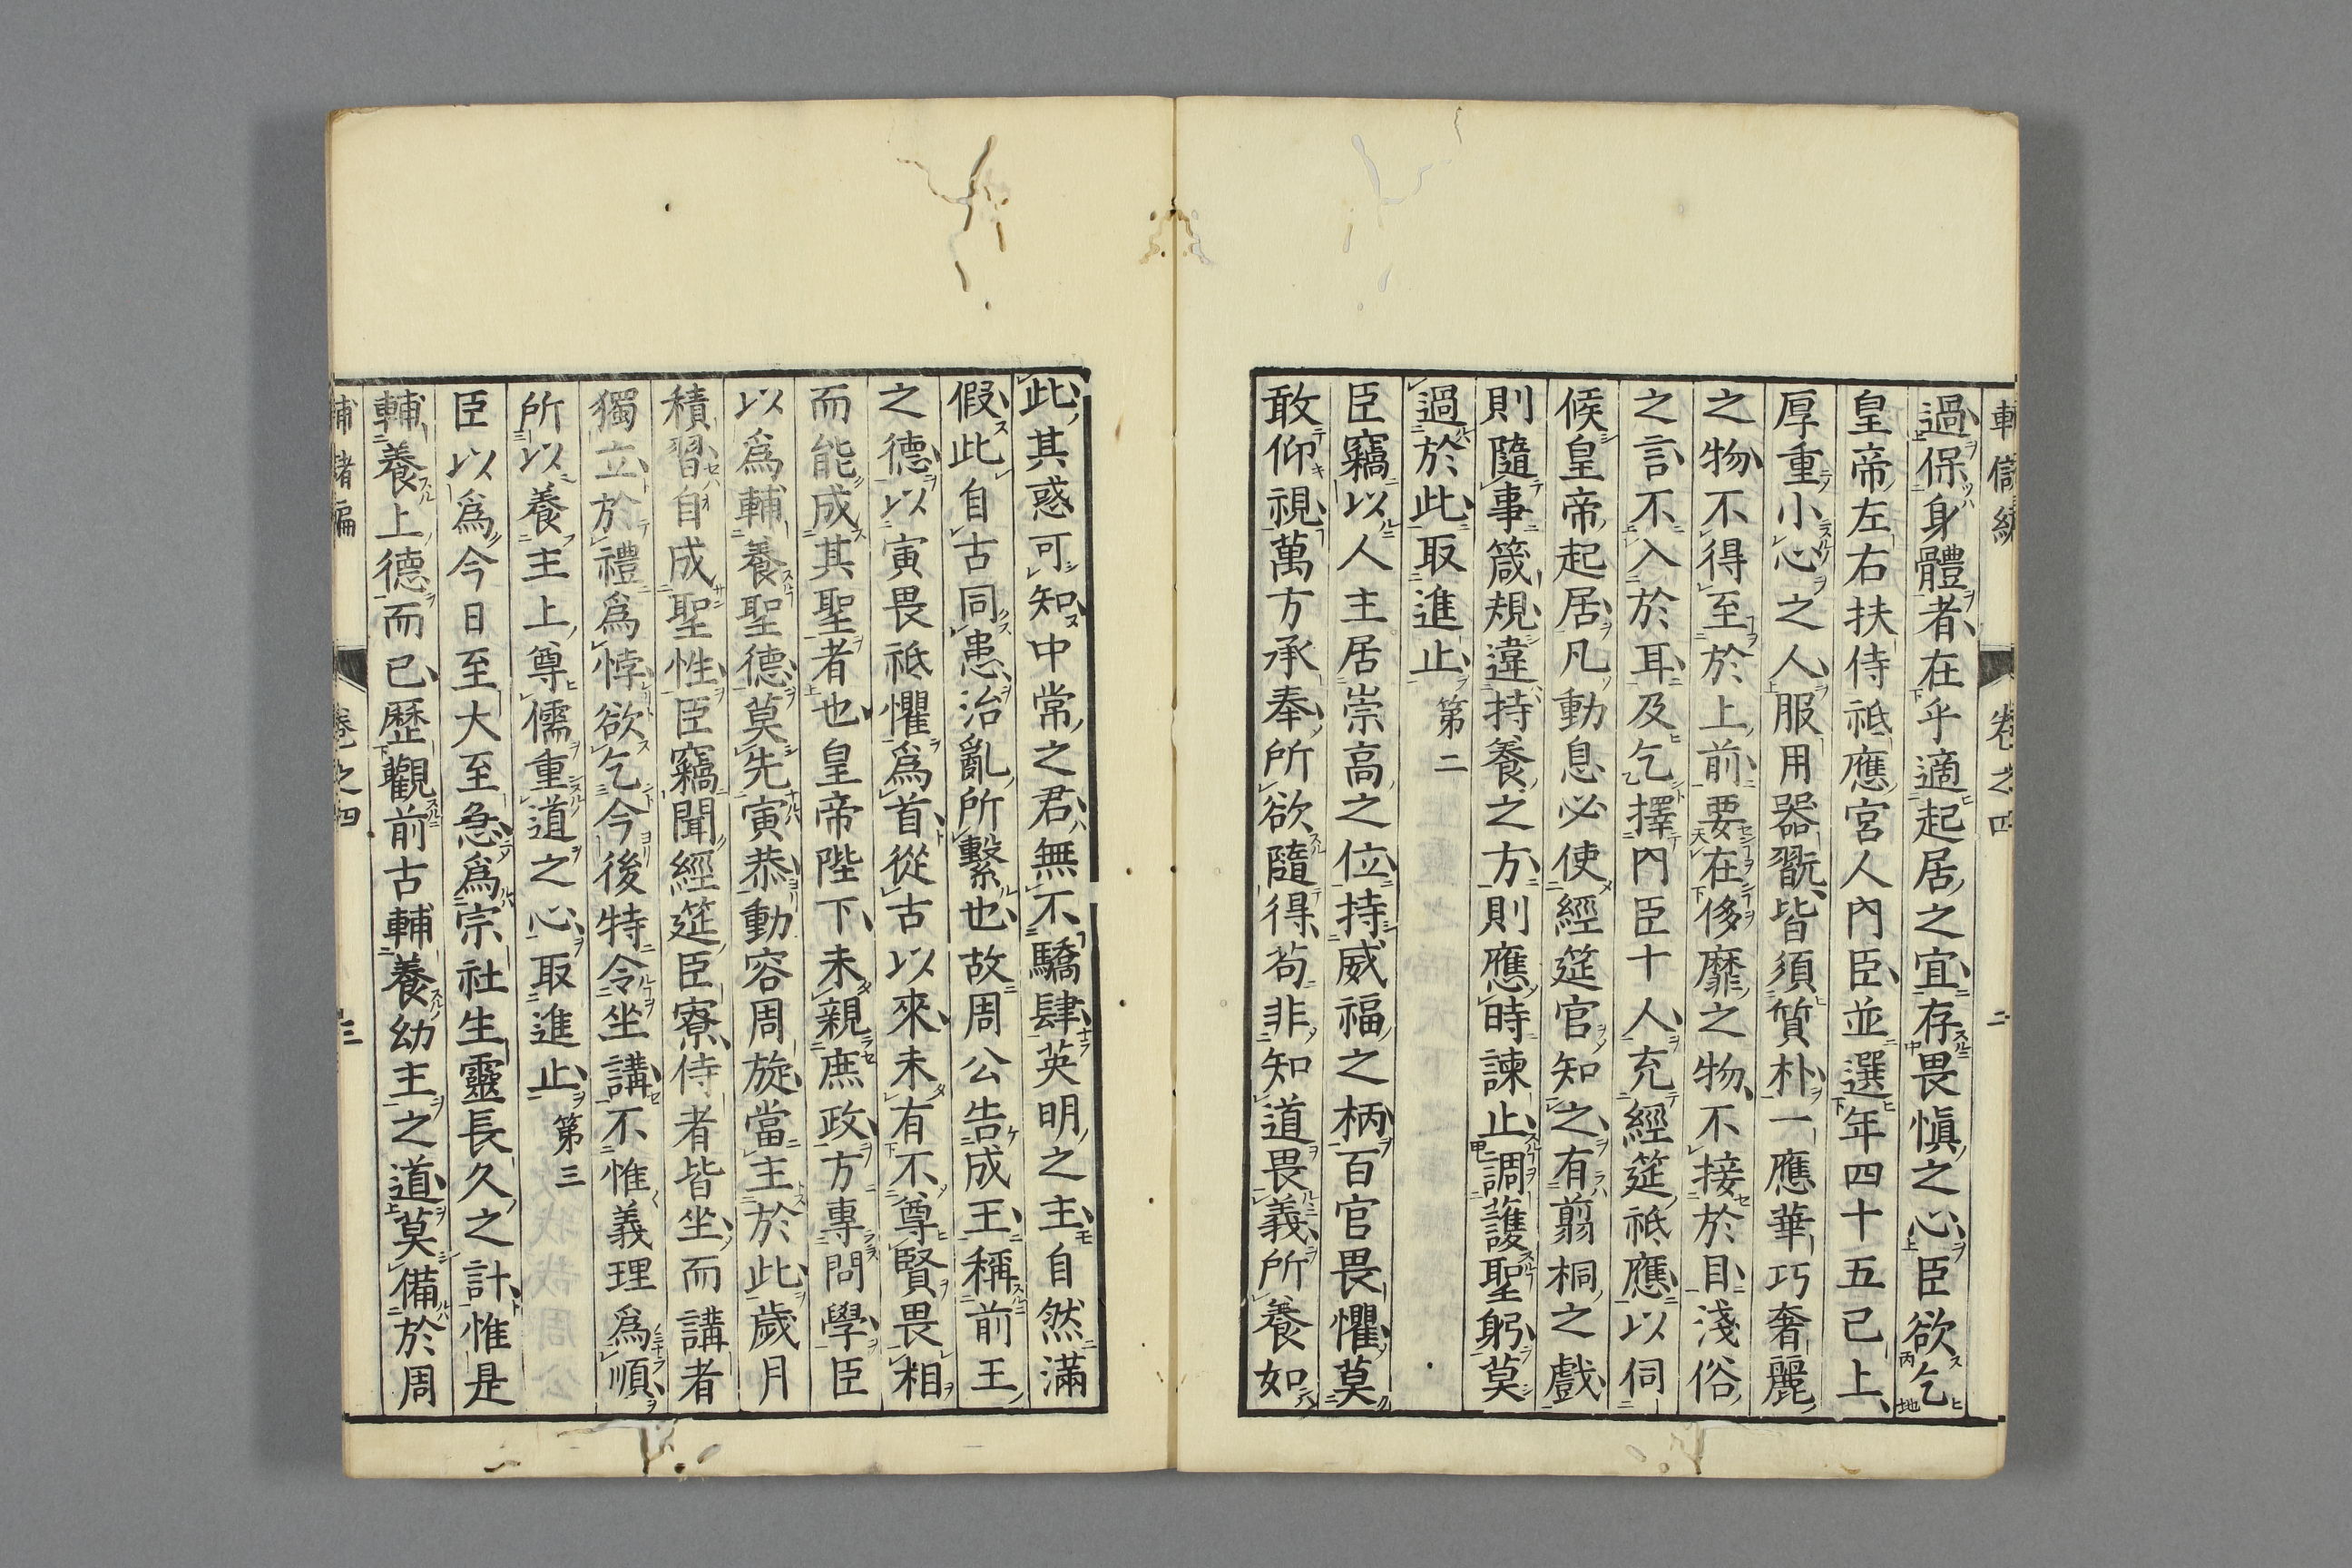 卷之四
二
過保身體者在乎適起居之宜存畏愼之心臣欲乞
皇帝左右扶侍祗應宮人內臣並選年四十五已上
厚重小心之人服用器翫皆須質朴一應華巧奢麗
之物不得至於上前要在侈靡之物不接於目淺俗
之言不入於耳及乞擇內臣十人充經筵祗應以伺
候皇帝起居凡動息必使經筵官知之有翦桐之戲
則隨事箴規違持養之方則應時諫止調護聖躬莫
過於此取進止第二
臣竊以人主居崇高之位持威福之柄百官畏懼莫
敢仰視萬方承奉所欲隨得苟非知道畏義所養如
此其惑可知中常之君無不驕肆英明之主自然滿
假此自古同患治亂所繫也故周公告成王稱前王
之德以寅畏祗懼爲首從古以來未有不尊賢畏相
而能成其聖者也皇帝陛下未親庶政方專問學臣
以爲輔養聖德莫先寅恭動容周旋當主於此歲月
積習自成聖性臣竊聞經筵臣寮侍者皆坐而講者
獨立於禮爲悖欲乞今後特令坐講不惟義理爲順
所以養主上尊儒重道之心取進止第三
臣以爲今日至大至急爲宗社生靈長久之計惟是
輔養上德而已歷觀前古輔養幼主之道莫備於周
卷之四
三